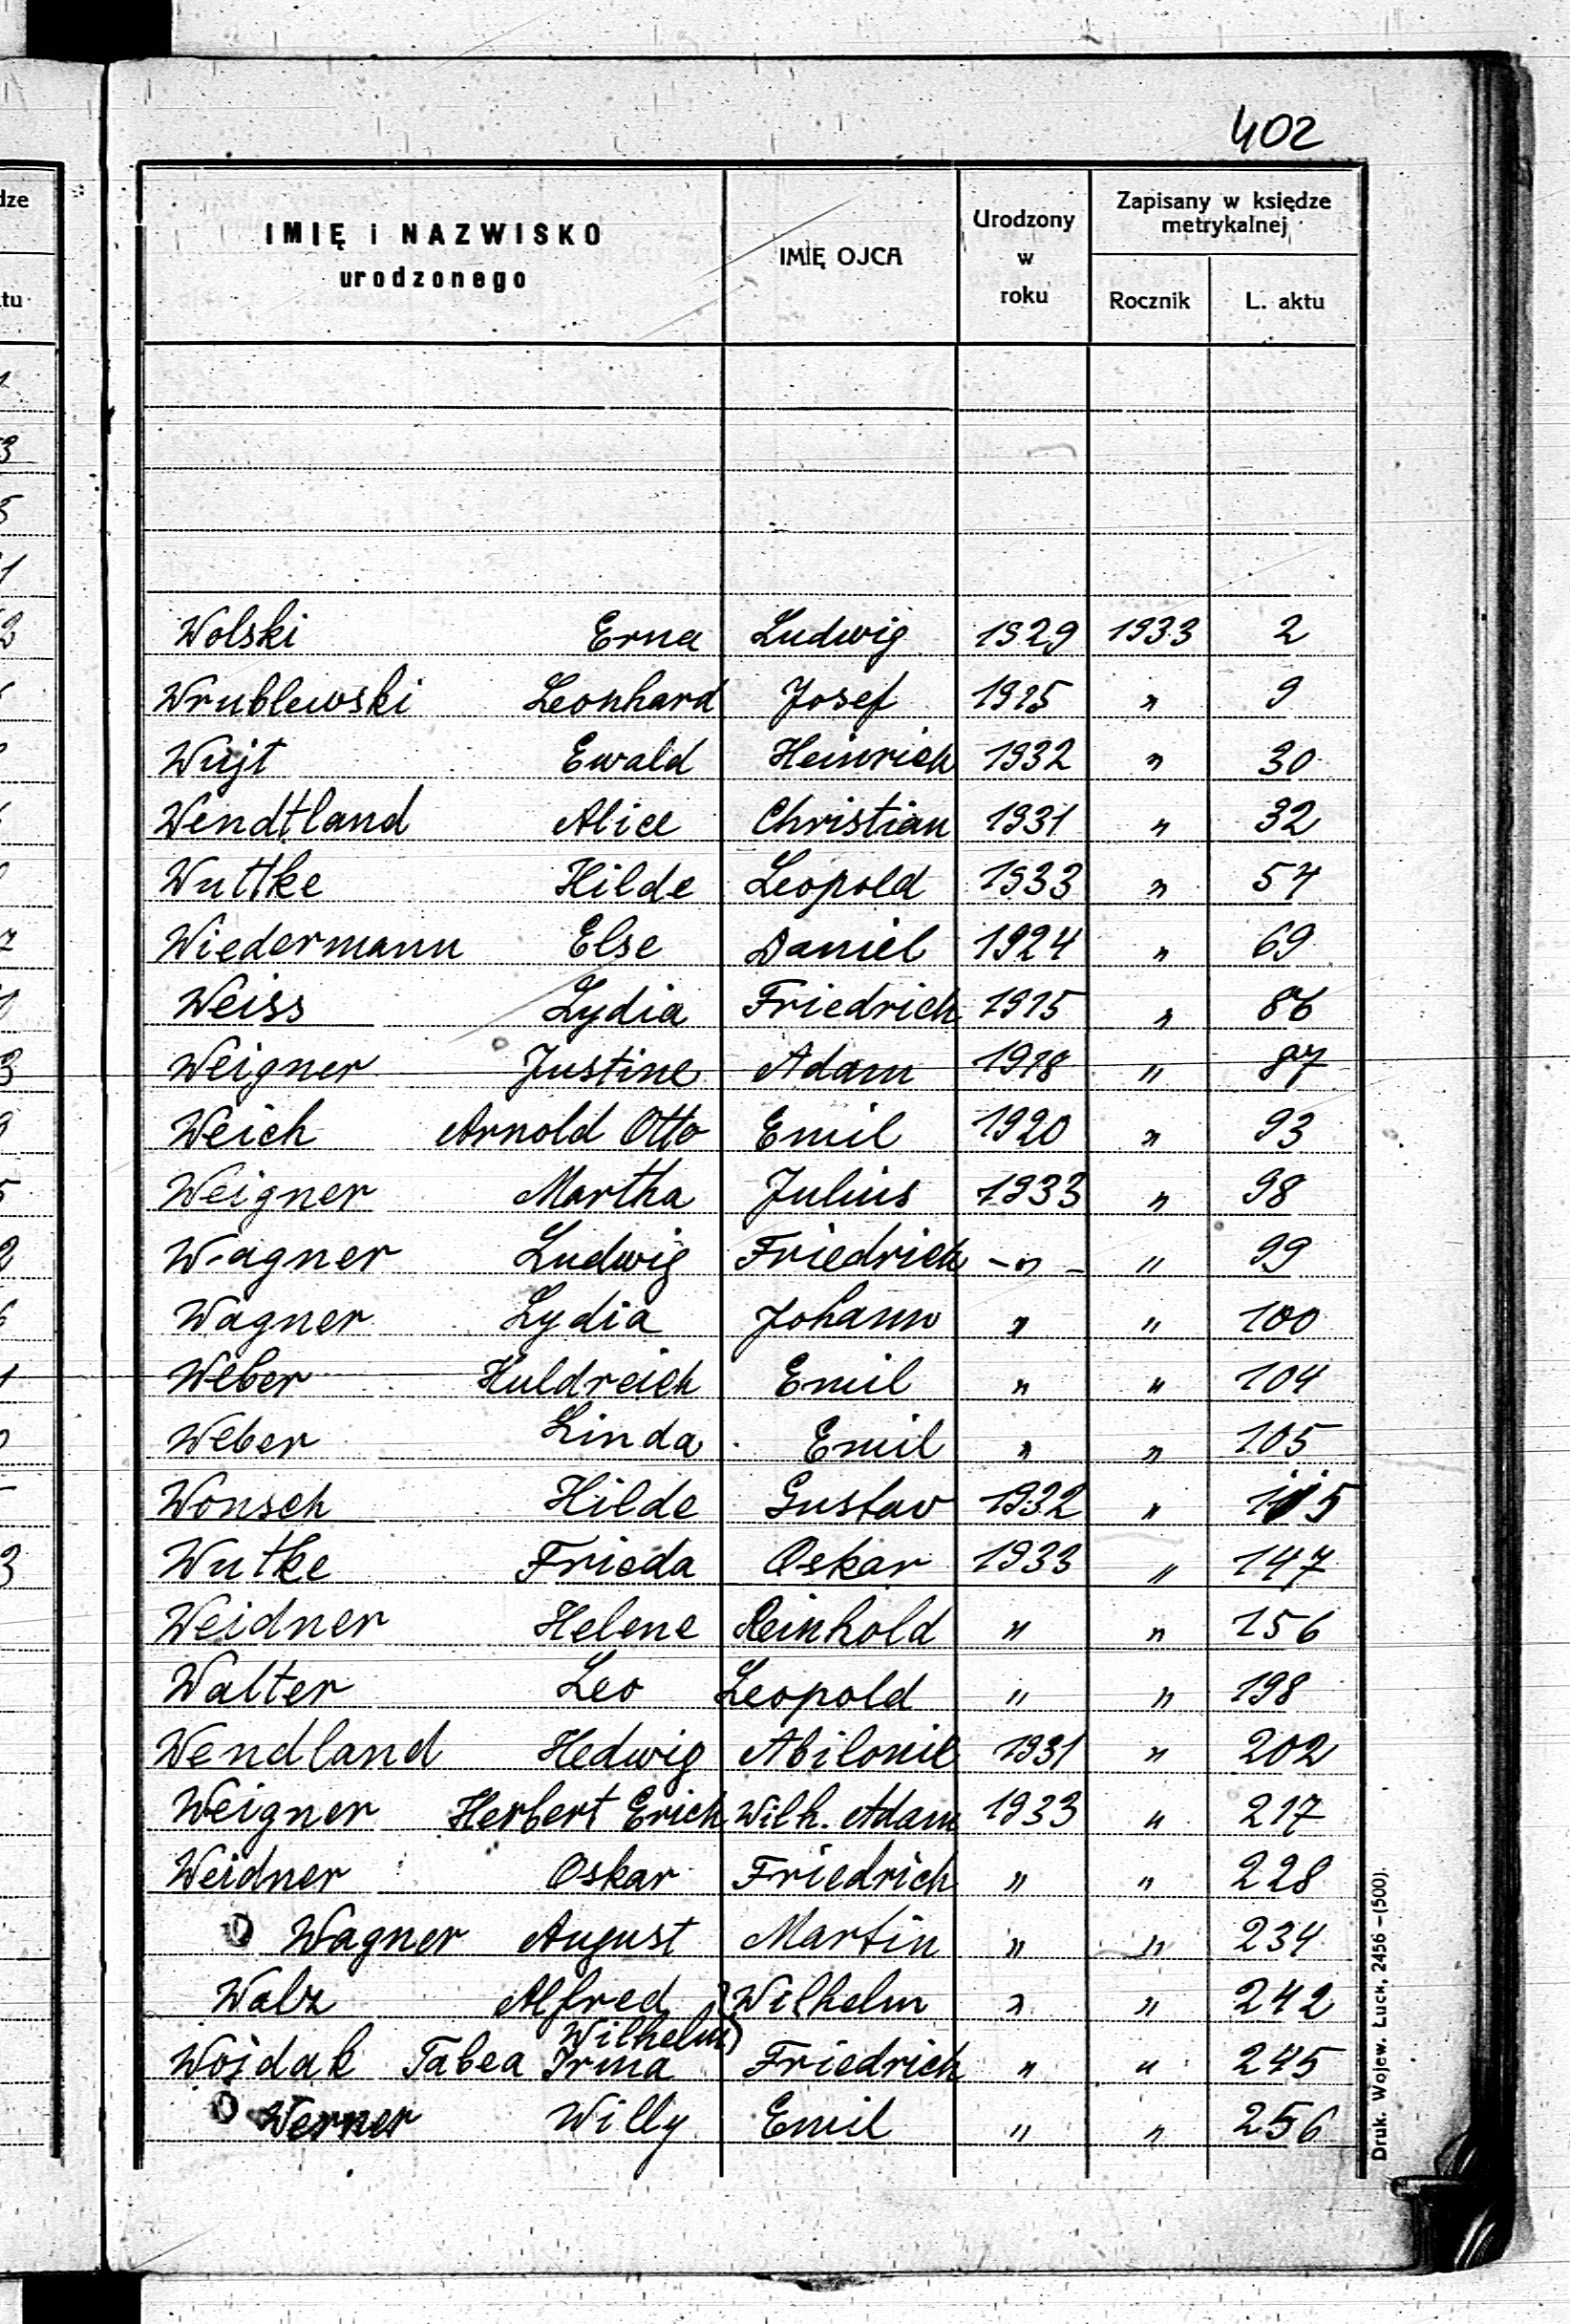 402
IMIĘ i NAZWISKO urodzonego
IMIĘ OJCA
Urodzony w roku
Zapisany w księdze metrykalnej
Rocznik
L. aktu
Wolski Erna Ludwig 1929 1933 2
Wrublewski Leonhard Josef 1925 " 9
Wujt Ewald Heinrich 1932 " 30
Wendtland Alice Christian 1931 " 32
Wuttke Hilde Leopold 1933 " 54
Wiedermann Else Daniel 1924 " 69
Weiss Lydia Friedrich 1915 " 86
Weigner Justine Adam 1918 " 87
Weich Arnold Otto Emil 1920 " 93
Weigner Martha Julius 1933 " 98
Wagner Ludwig Friedrich -"- " 99
Wagner Lydia Johann " " 100
Weber Huldreich Emil " " 104
Weber Linda Emil " " 105
Wonsch Hilde Gustav 1932 " 115
Wutke Frieda Oskar 1933 " 147
Weidner Helene Reinhold " " 156
Walter Leo Leopold " " 198
Wendland Hedwig 1931 " 202
Weigner Herbert Erich Wilh. Adam 1933 " 217
Weidner Oskar Friedrich " " 228
Wagner August Martin " " 234
Walz Alfred Wilhelm " " 242
Wilhelm)
Wojdak Tabea Irma Friedrich " " 245
Werner Willy Emil " " 256
Druk. Wojew. Łuck, 2456 – (500).
dze
ktu